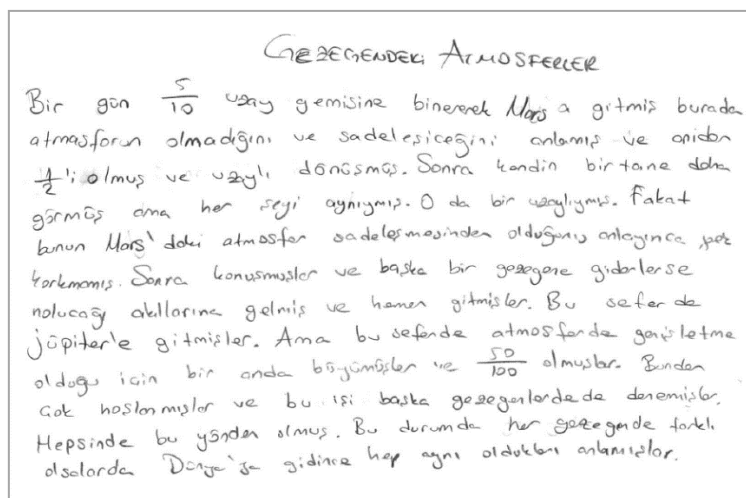 GEZEGENDEKİ ATMOSFERLER
Bir gün 5/10 uzay gemisine binererek Mars a gitmiş burada
atmasforun olmadığını ve sadeleşiceğini anlamış ve aniden
1/2'i olmuş ve uzaylı dönüşmüş. Sonra kendin bir tane daha
görmüş ama her şeyi aynıymış. O da bir uzaylıymış. Fakat
bunun Mars'daki atmosfer sadeleşmesinden olduğunu anlayınca pek
korkmamış. Sonra konuşmuşlar ve başka bir gezegene giderlerse
nolucağı akıllarına gelmiş ve hemen gitmişler. Bu sefer de
jüpiter'e gitmişler. Ama bu seferde atmosferde genişletme
olduğu için bir anda büyümüşler ve 50/100 olmuşlar. Bundan
çok hoşlanmışlar ve bu işi başka gezegenlerde de denemişler.
Hepsinde bu yönden olmuş. Bu durumda her gezegende farklı
olsalarda Dünya'ya gidince hep aynı oldukları anlamışlar.